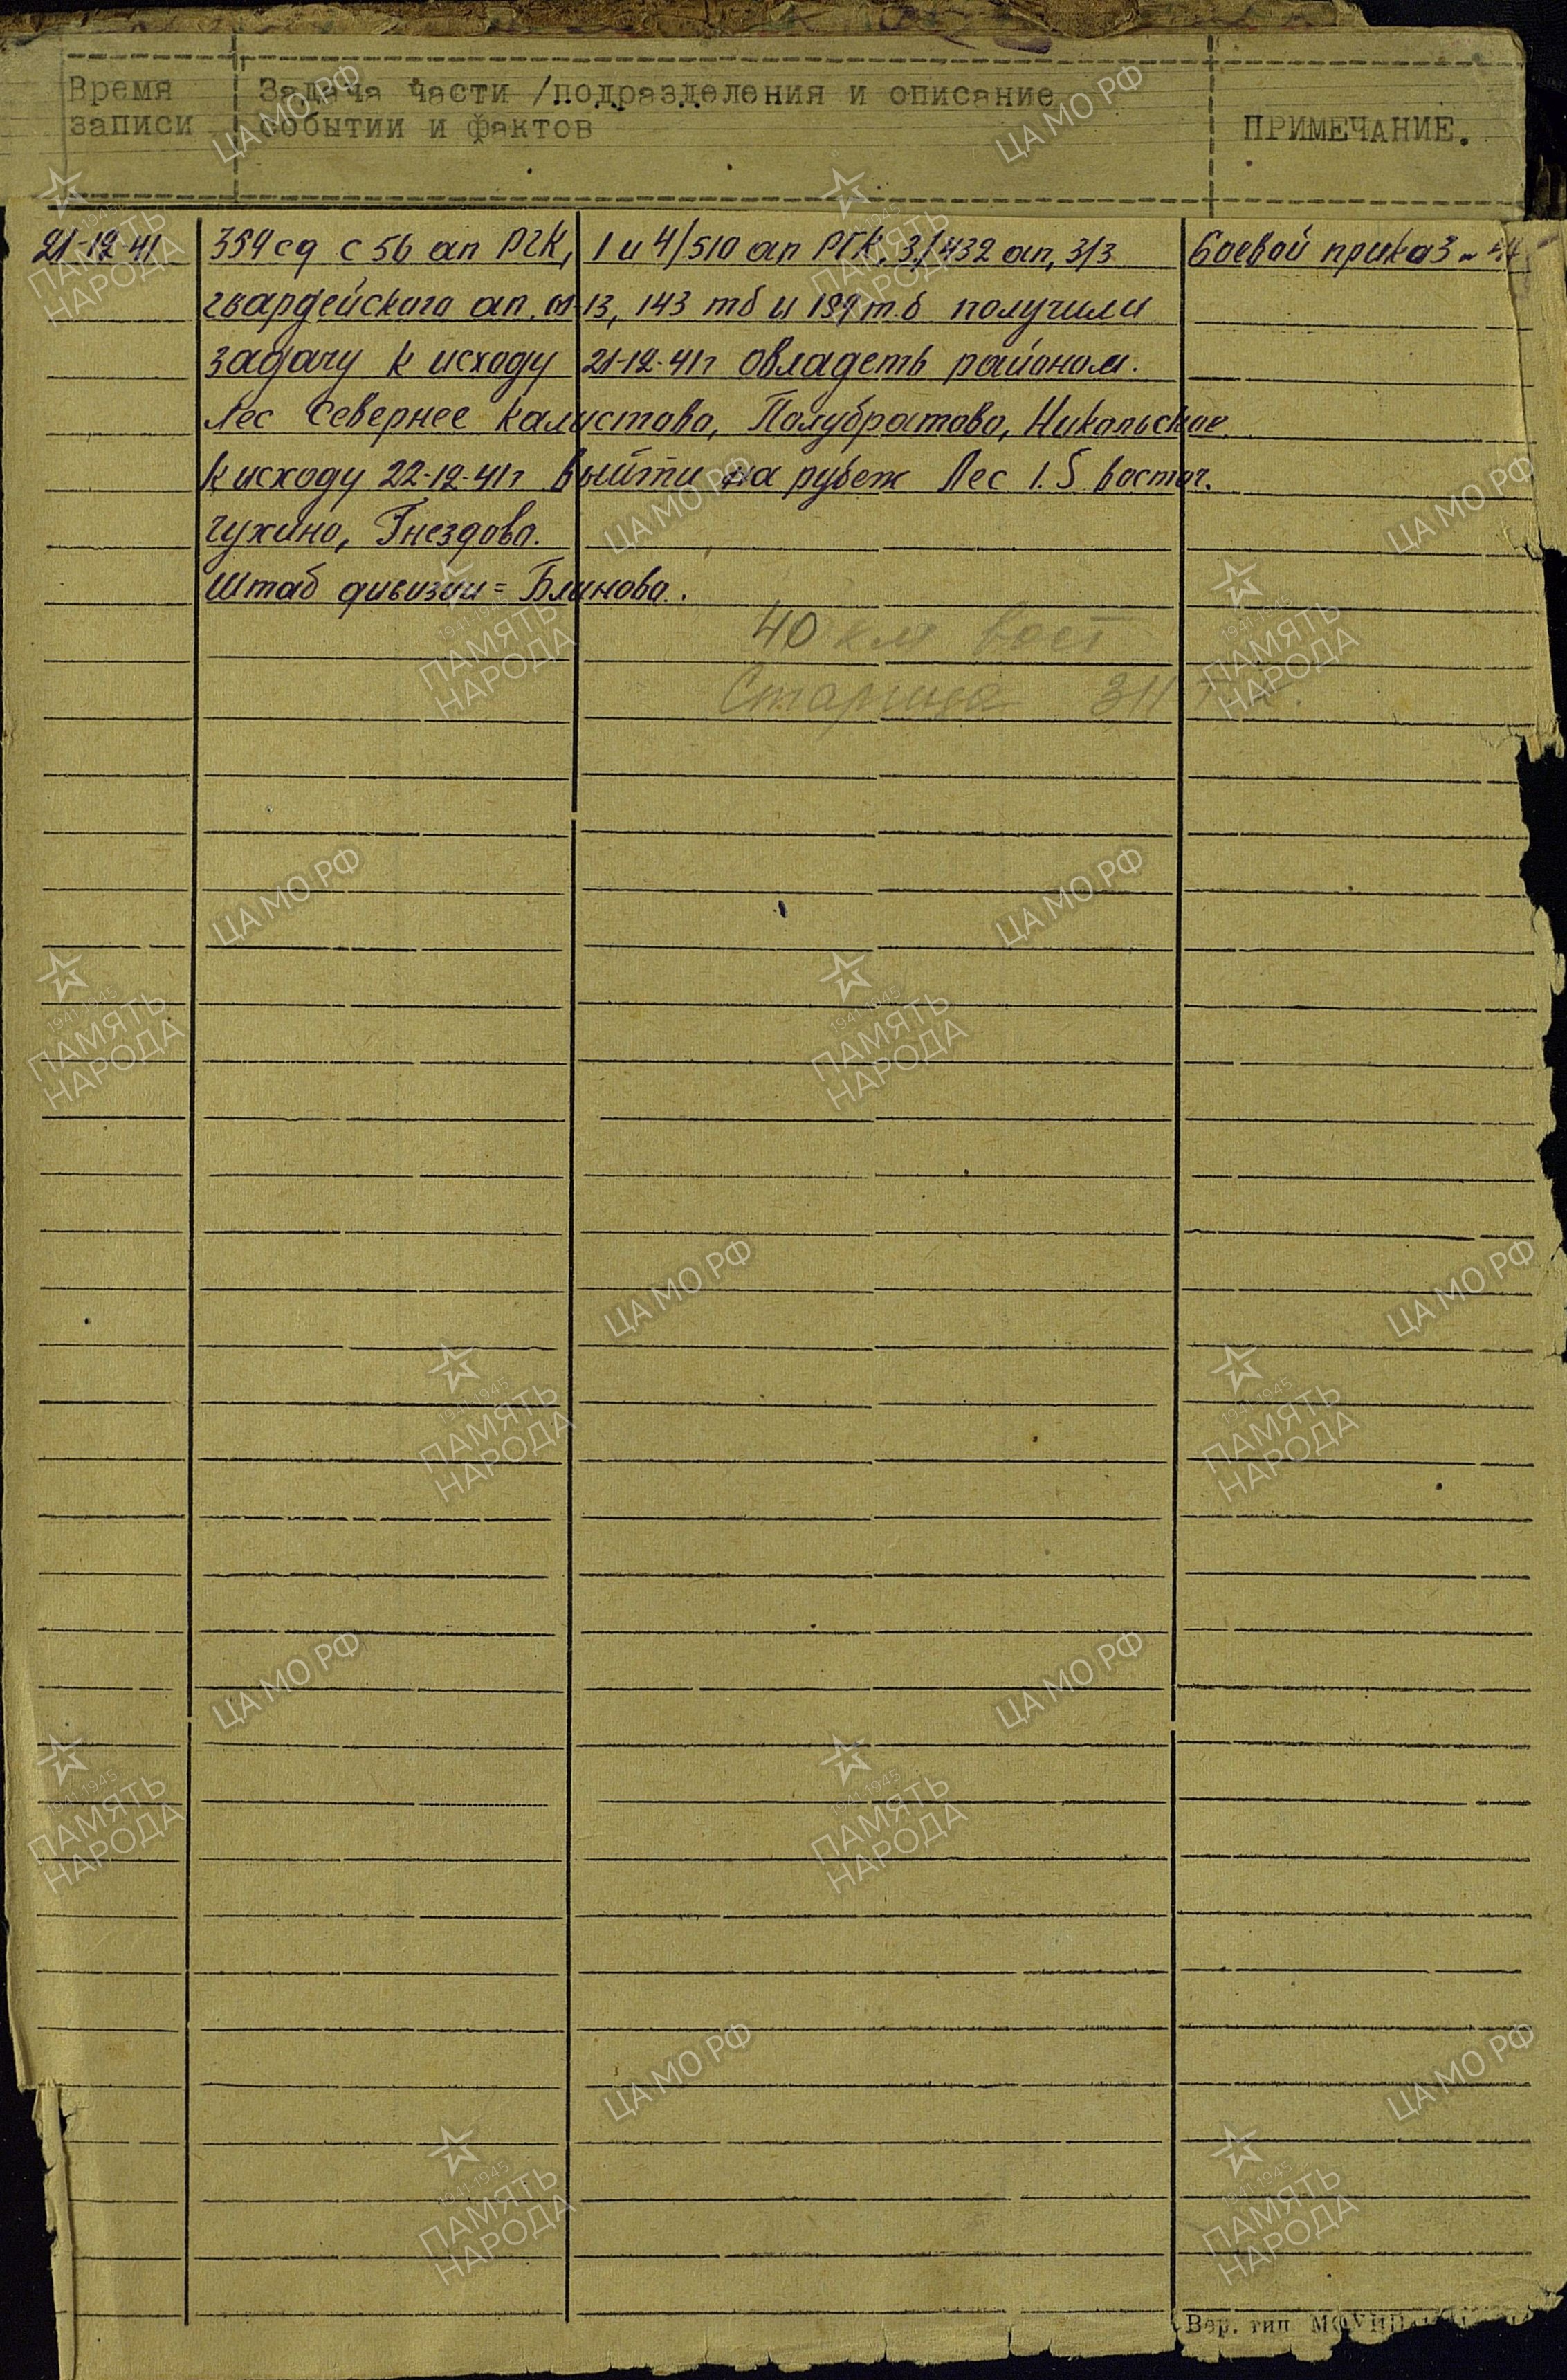 Время
записи
Задача части /подразделения и описание
событии и фактов
ПРИМЕЧАНИЕ.
21-12-41 359 сд с 56 ап РГК, 1 и 4/510 ап РГК, 3/432 ап, 3/3 Боевой приказ
гвардейского ап, 143 тб и 159 тб получили
задачу к исходу 21-12-41г овладеть районом.
Лес Севернее Калистово, Полубратово, Никольское
к исходу 22-12-41г выйти на рубеж Лес 1.5 восточ.
Чухино, Гнездово.
Штаб дивизии = Блиново.
40 км вост
Старица
Вер. тип
ЦА МО РФ
1941-1945
ПАМЯТЬ
НАРОДА